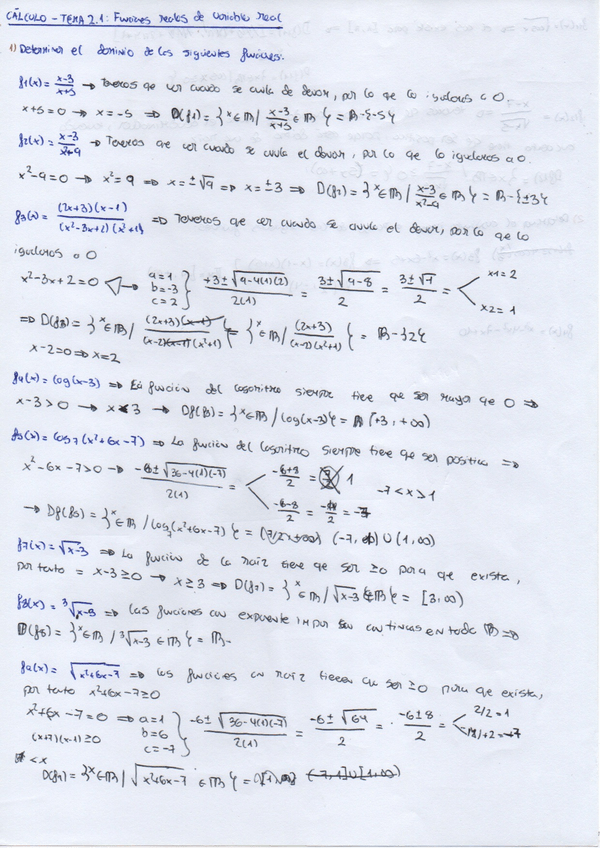 CÁLCULO - TEMA 2.1: Funciones reales de variable real
1) Determinar el dominio de las siguientes funciones:
f1(x) = x-3/x+5 → Tenemos que ver cuando se anula de denom, por lo que lo igualamos a 0.
x+5=0 → x=-5 ⇒ D(f1) = {x∈R / x-3/x+5 ∈ R} = R-{-5}
f2(x) = x-3/x²-9 → Tenemos que ver cuando se anula el denom, por lo que lo igualamos a 0.
x²-9=0 ⇒ x²=9 ⇒ x=±√9 ⇒ x=±3 ⇒ D(f2) = {x∈R / x-3/x²-9 ∈ R} = R-{±3}
f3(x) = (2x+3)(x-1)/(x²-3x+2)(x²+1) ⇒ Tenemos que ver cuando se anula el denom, por lo que lo
igualamos a 0
x²-3x+2=0 a=1 b=-3 c=2 } +3±√9-4(1)(2)/2(1) = 3±√9-8/2 = 3±√1/2 = x1=2 x2=1
⇒ D(f3) = {x∈R / (2x+3)(x-1)/(x-2)(x-1)(x²+1)} = {x∈R / (2x+3)/(x-2)(x²+1)} = R-{2}
x-2=0 ⇒ x=2
f4(x) = log(x-3) ⇒ La función del logaritmo siempre tiene que ser mayor que 0 ⇒
x-3>0 → x 3 → Df(f3) = {x∈R / log(x-3)} = [+3, +∞)
log7(x²+6x-7) ⇒ La función del logaritmo siempre tiene que ser positiva ⇒
x²-6x-7>0 → -6±√36-4(1)(-7)/2(1) = -6+8/2 = 1
-6-8/2 = = -7
-7<x>1
→ Df(f5) = {x∈R / log7(x²+6x-7)} = (-7, ) U (1, ∞)
f7(x) = √x-3 ⇒ La función de la raíz tiene que ser ≥0 para que exista,
por tanto = x-3≥0 → x≥3 ⇒ D(f7) = {x∈R / √x-3 ∈ R} = [3, ∞)
f8(x) = ³√x-3 ⇒ Las funciones con exponente impar son continuas en todo R ⇒
D(f8) = {x∈R / ³√x-3 ∈ R} = R-
√x²+6x-7 ⇒ las funciones con raíz tienen que ser ≥0 para que exista,
por tanto x²+6x-7≥0
x²+6x-7=0 ⇒ a=1
(x+7)(x-1)≥0 b=6 c=-7 } -6±√36-4(1)(-7)/2(1) = -6±√64/2 = -6±8/2 = 2/2=1
<x
/ √x²+6x-7 ∈ R} =